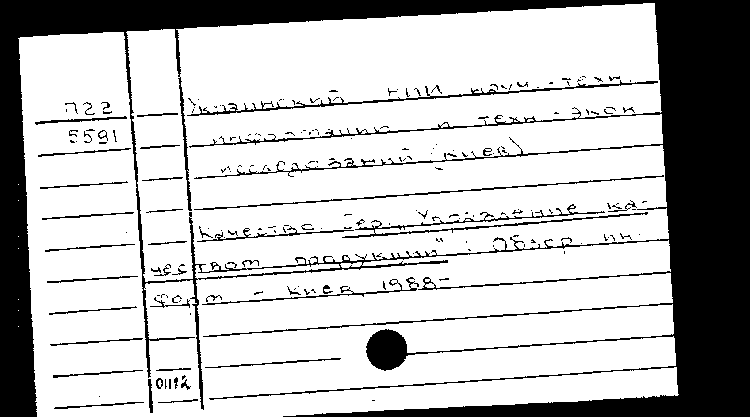 П22
5591
Украинский НИИ науч.-техн.
информации и техн.-экон.
исследований (Киев)
Качество. Сер. "Управление ка-
чеством продукции": Обзор. ин-
форм. - Киев, 1988-
01192